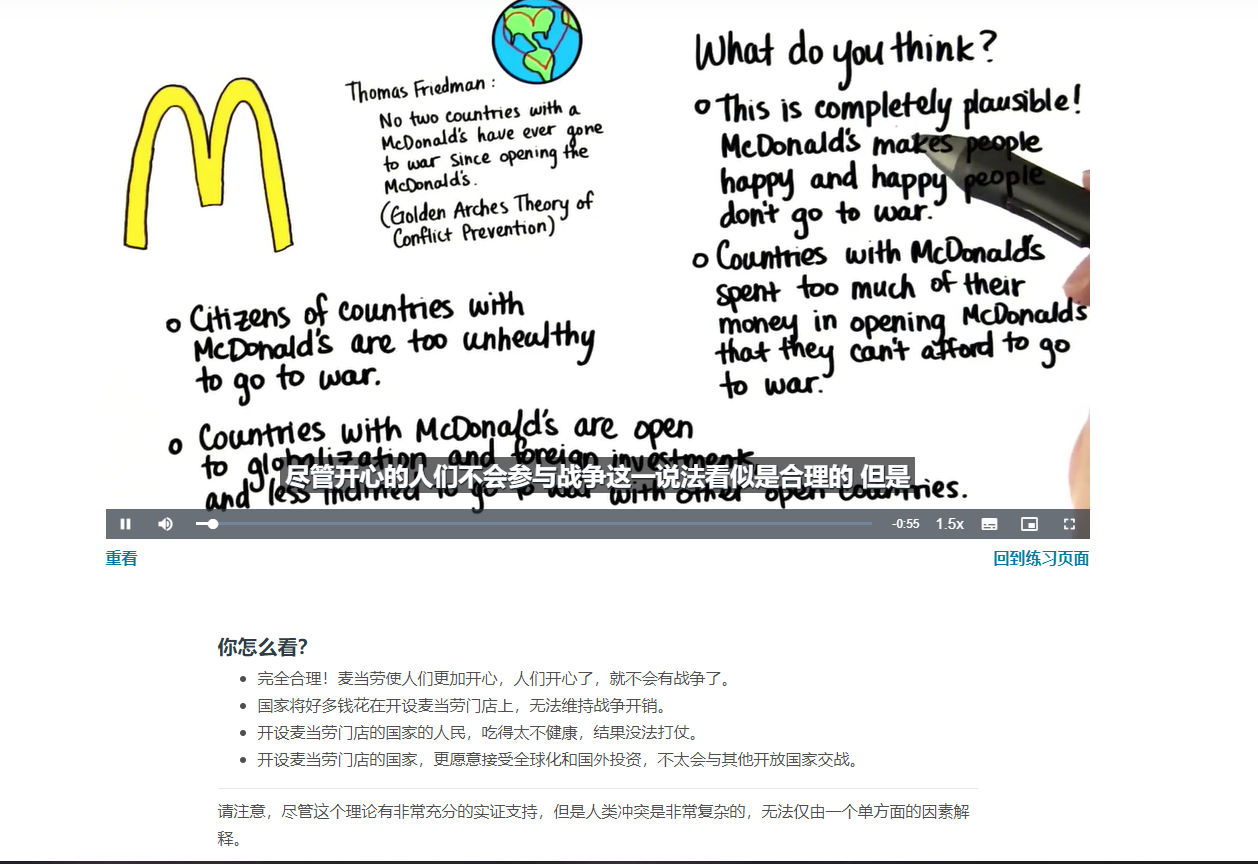 Thomas Friedman :
No two countries with a
McDonald's have ever gone
to war since opening the
McDonald's.
(Golden Arches Theory of
Conflict Prevention)
What do you think?
This is completely plausible!
McDonald's makes people
happy and happy people
don't go to war.
Countries with McDonald's
spent too much of their
money in opening McDonalds
that they can't afford to go
to war.
Citizens of countries with
McDonald's are too unhealthy
to go to war.
Countries with McDonald's are open
to globalization and foreign investments
and less inclined to go to war with other open countries.
尽管开心的人们不会参与战争这一说法看似是合理的 但是
-0:55 1.5x
重看 回到练习页面
你怎么看?
完全合理！麦当劳使人们更加开心，人们开心了，就不会有战争了。
国家将好多钱花在开设麦当劳门店上，无法维持战争开销。
开设麦当劳门店的国家的人民，吃得太不健康，结果没法打仗。
开设麦当劳门店的国家，更愿意接受全球化和国外投资，不太会与其他开放国家交战。
请注意，尽管这个理论有非常充分的实证支持，但是人类冲突是非常复杂的，无法仅由一个单方面的因素解
释。